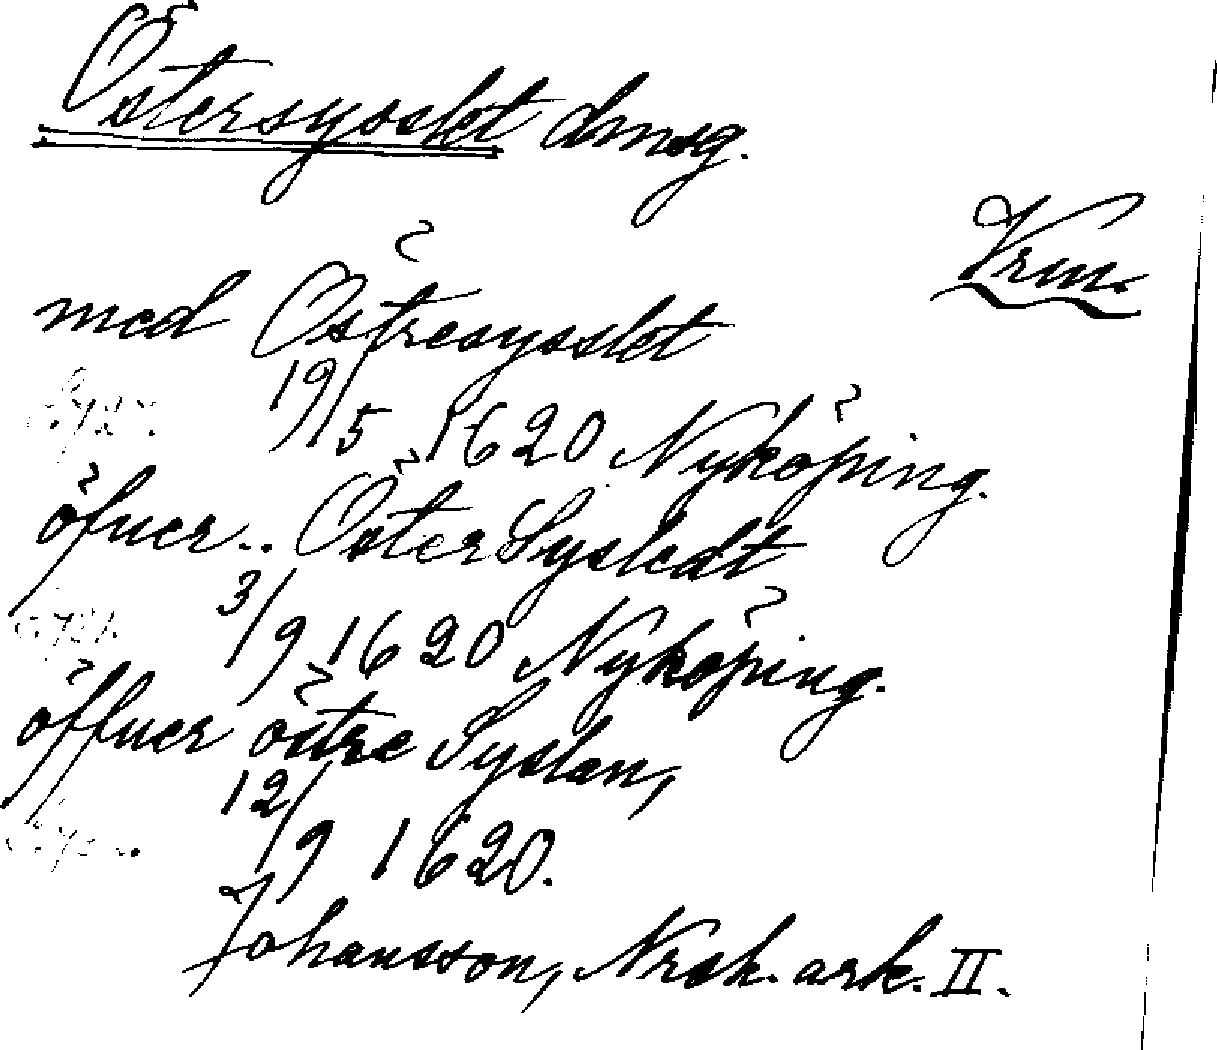 Östersysslet dmsg.
Vrm.
med Östresysslet
19/5 1620 Nyköping.
öfuer.. Öster Sysledt
3/9 1620 Nyköping.
öffuer östre Syslan,
12/9 1620.
Johansson, Nrsk. ark. II.